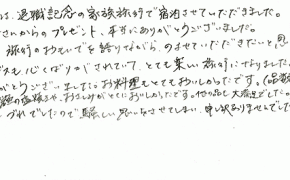 は、退職記念の家族旅行で宿泊させていただきました。
さいからのプレゼント、本当にありがとうございました。
旅行のおもいでを語りながら、のませていただきたいと思
ビスも心くばりがされていて、とても楽しい旅行になりました。
がとうございました。お料理もとてもおいしかったです。(品数
の種類や、おさしみがとくにおいしかったです。他の品も大満足でした。
づれでしたので騒しい思いをさせてしまい、申し訳ありませんでした